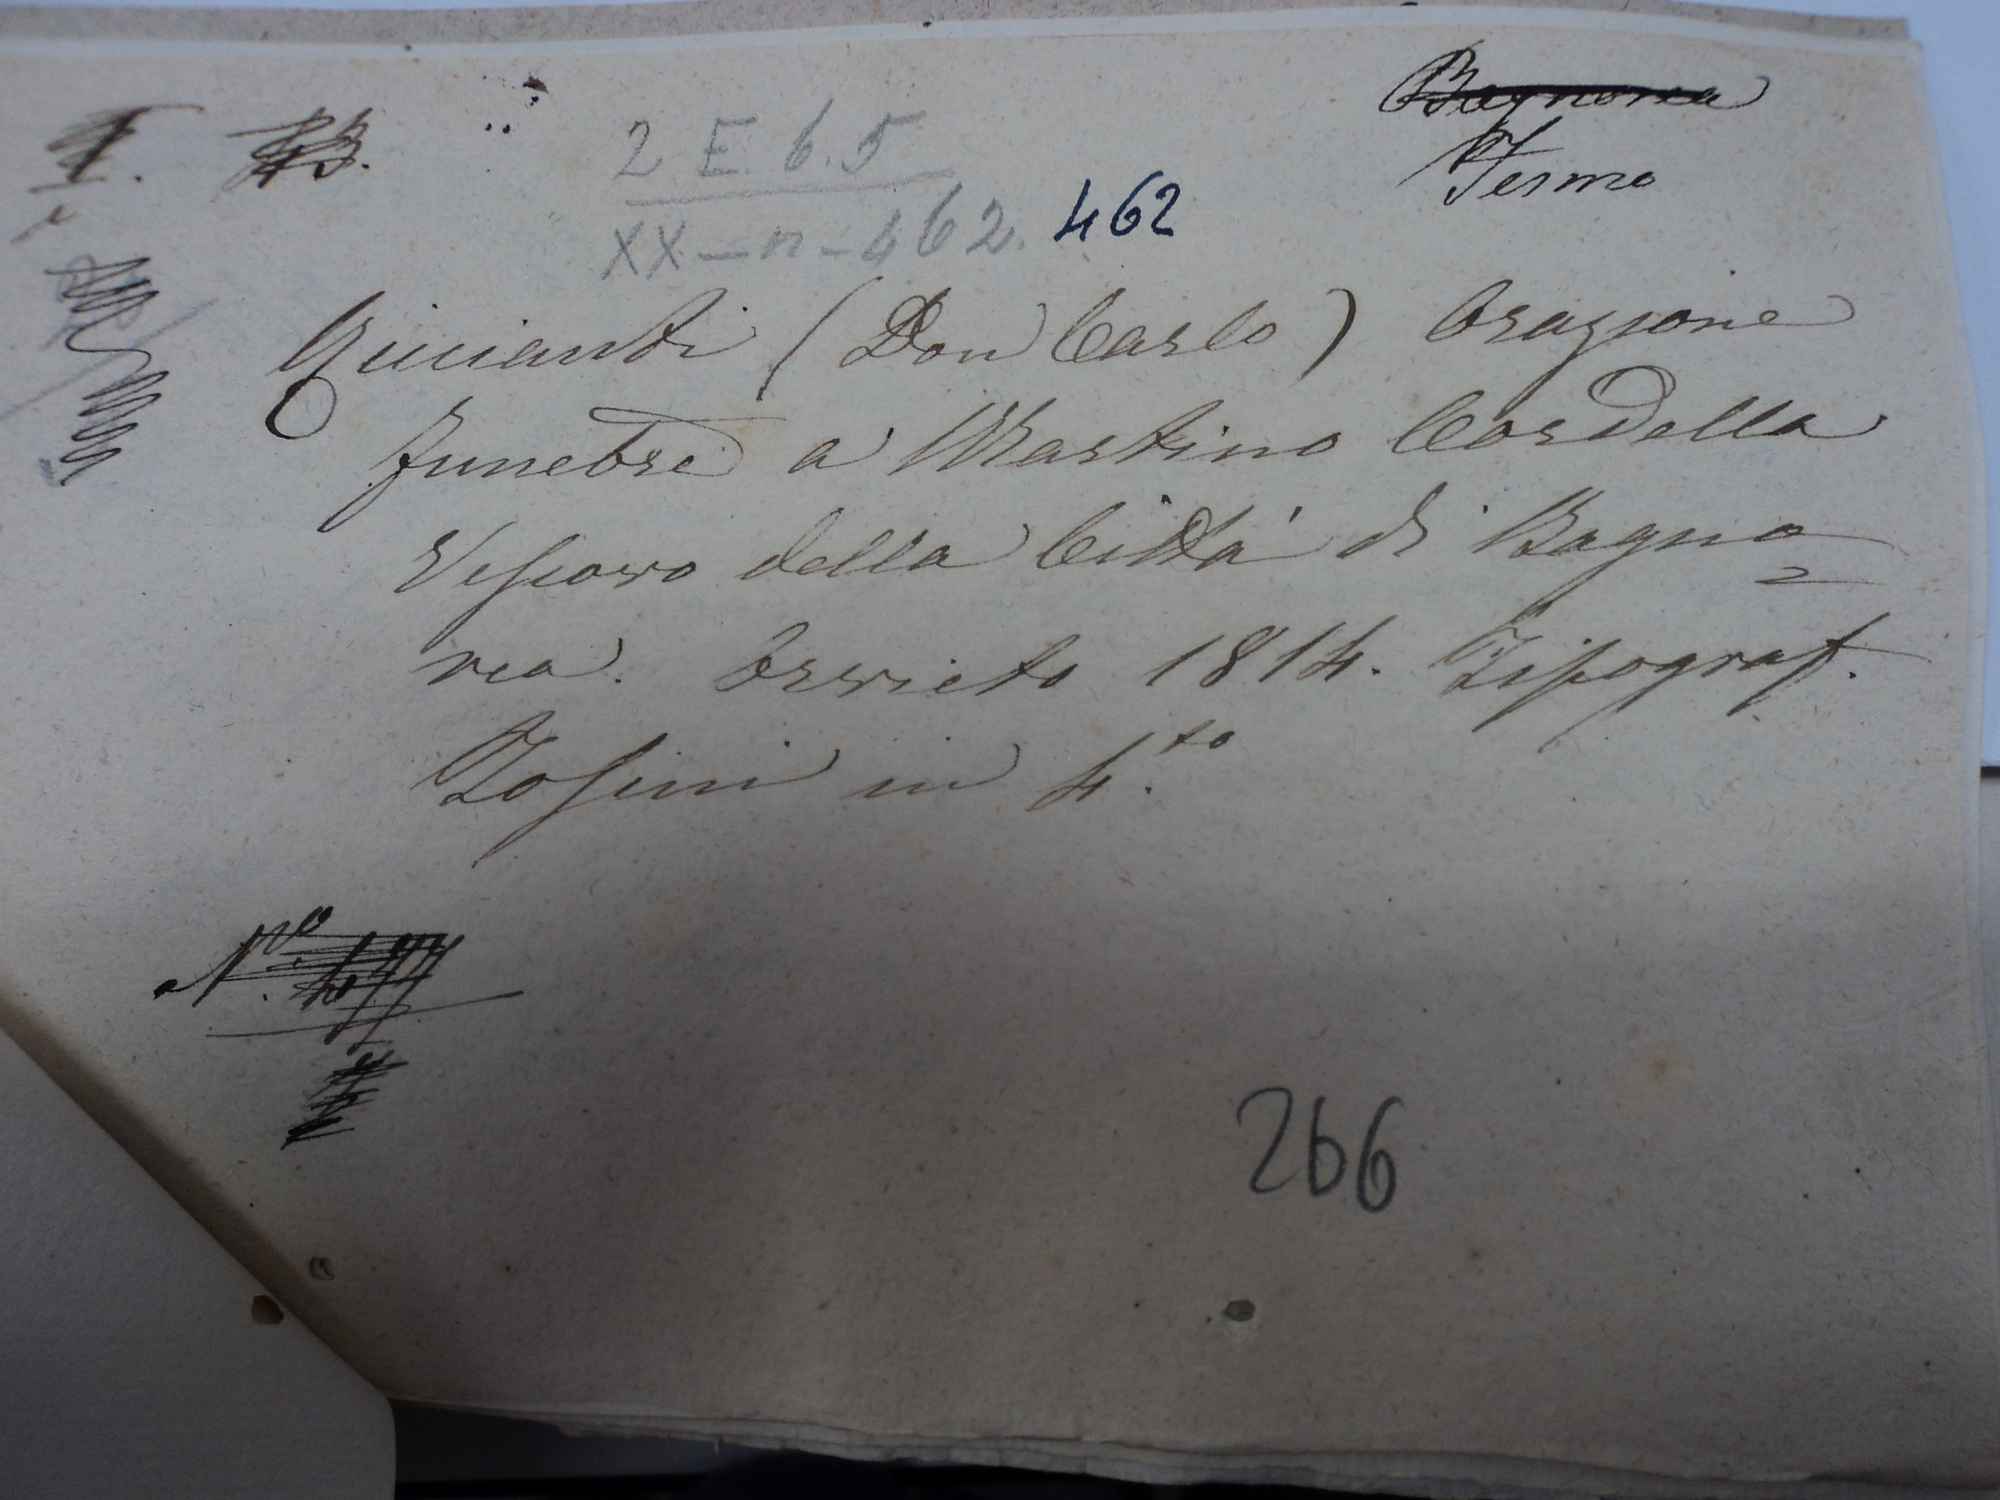 I. 43.
Bagnorea
Fermo
2 E. 6. 5
XX - n - 462. 462
(Don Carlo) Orazione
funebre a Martino Cordella
Vescovo della Città di Bagno=
rea. Orvieto 1814. Tipograf.
Tosini in 4.to
N.o 477
266